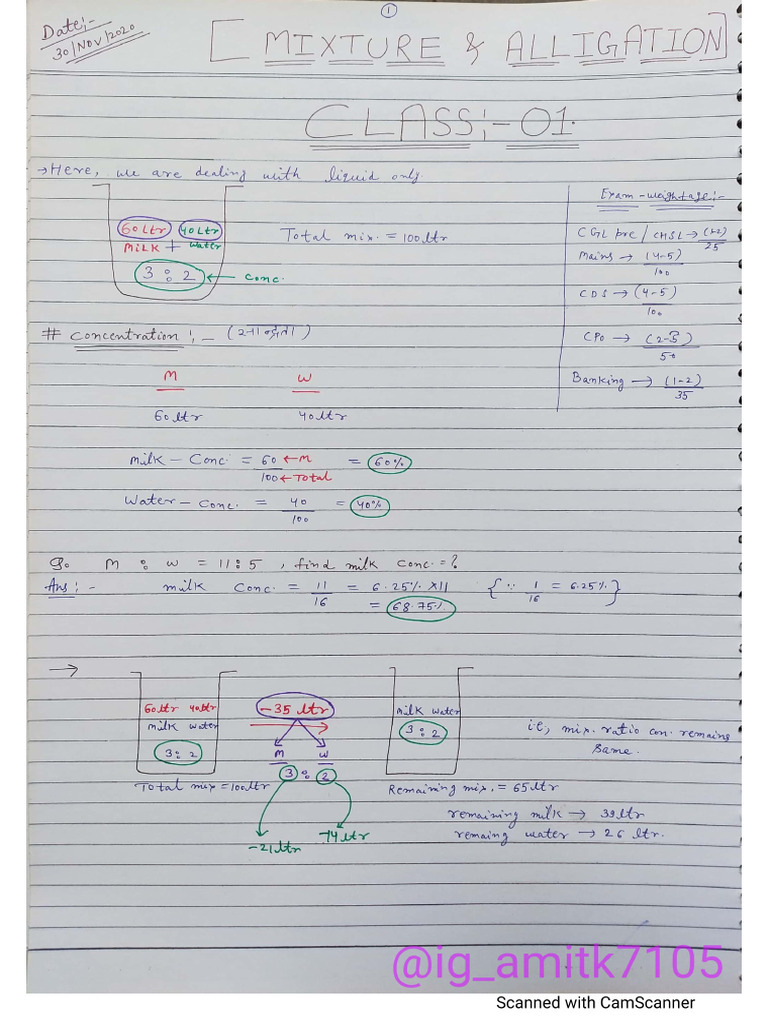 1
Date:-
30/Nov/2020
[ MIXTURE & ALLIGATION ]
CLASS:-01.
→ Here, we are dealing with liquid only.
60Ltr 40Ltr
MILK + Water
3 : 2 ← Conc.
Total mix. = 100 ltr
Exam-weightage:-
CGL pre / CHSL → (1-2)/25
Mains → (4-5)/100
CDS → (4-5)/100
CPO → (2-3)/50
Banking → (1-2)/35
# Concentration :-
M W
60 ltr 40 ltr
Milk - Conc. = 60 ← M / 100 ← Total = 60%
Water - Conc. = 40/100 = 40%
Q. M : W = 11:5 , find milk conc. = ?
Ans:- milk Conc. = 11/16 = 6.25% x11 { ∵ 1/16 = 6.25% }
= 68.75%
→
60ltr 40ltr
milk water
3:2
Total mix = 100ltr
-35 ltr
M W
3 : 2
-21 ltr
-14 ltr
milk water
3:2
Remaining mix. = 65 ltr
i.e, mix. ratio con. remains
same.
remaining milk → 39 ltr
remaing water → 26 ltr.
@ig_amitk7105
Scanned with CamScanner